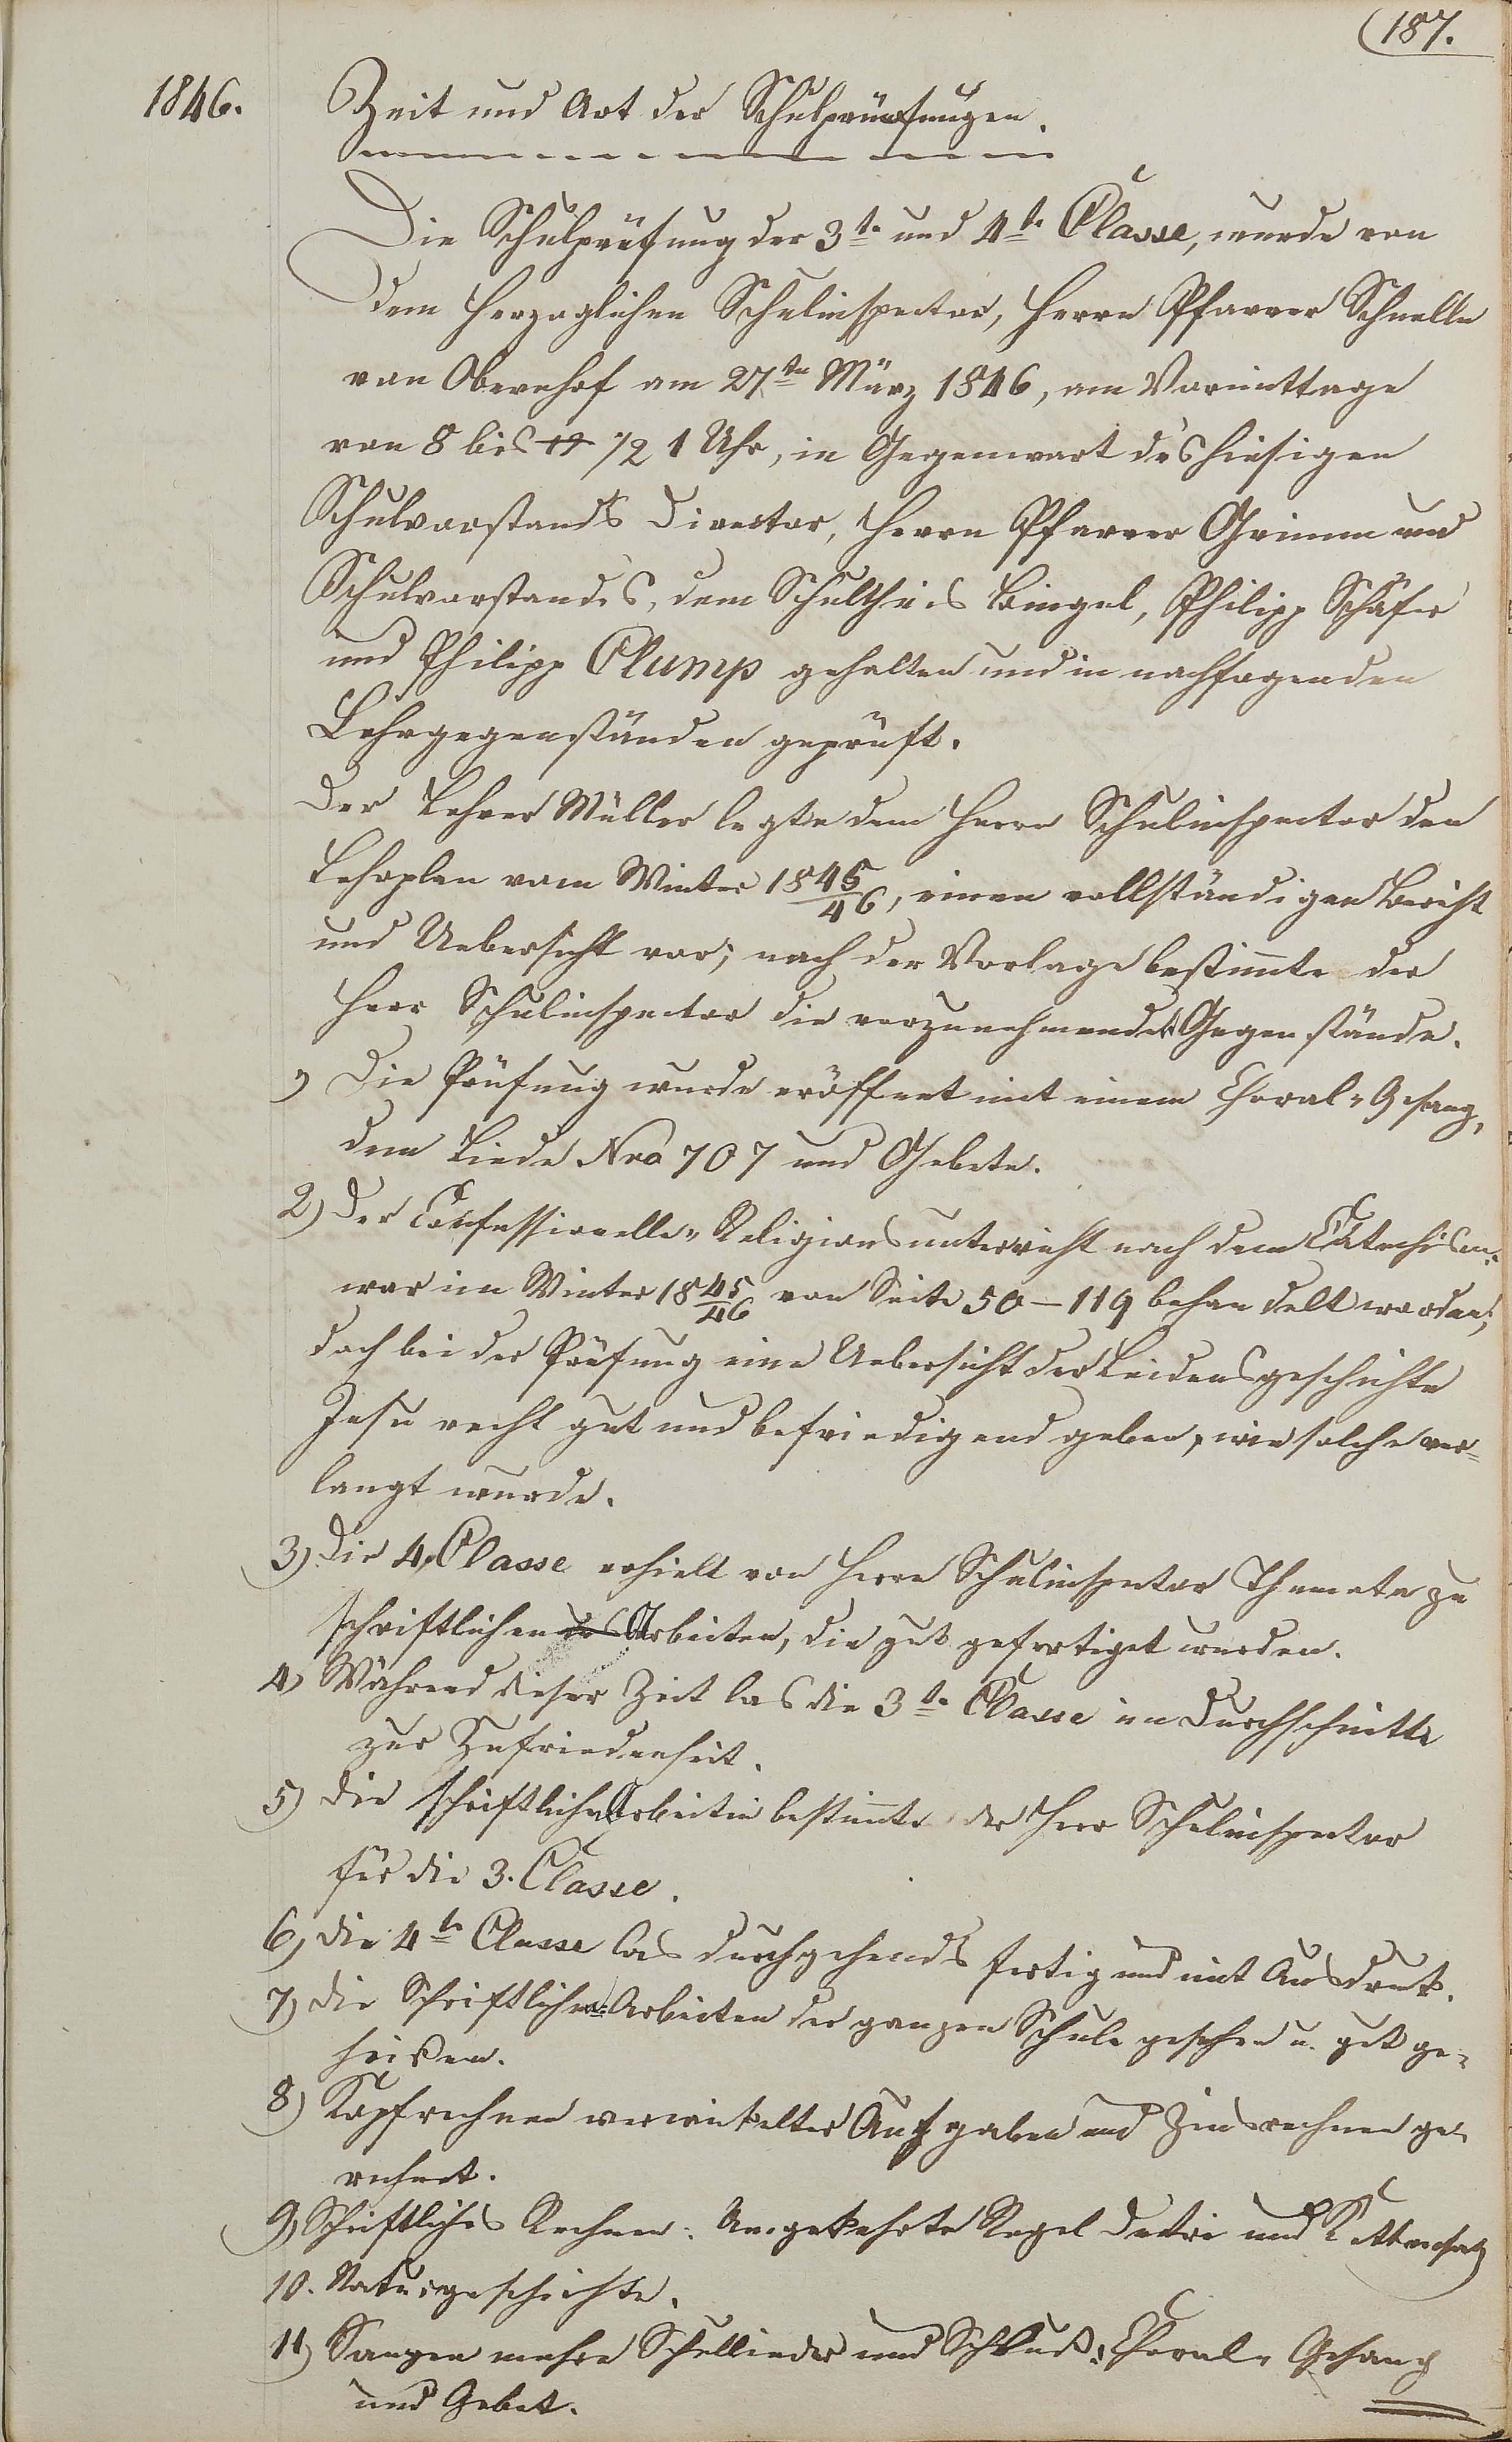 187.
1846.
Zeit und Art der Schulprüfungen.
Die Schulprüfung der 3te und 4te Classe, wurde von
dem Herzoglichen Schulinspector, Herrn Pfarrer Schnelle
von Obernhof am 27ten März 1846, am Vormittage
von 8 bis 12 1/2 1 Uhr, in Gegenwart des hiesigen
Schulvorstands Director, Herrn Pfarrer Grimm und
Schulvorstandes, dem Schultheis Bingel, Philipp Schäfer
und Philipp Clump gehalten und in nachfogenden
Lehrgegenständen geprüft.
Der Lehrer Müller legte dem Herrn Schulinspector den
Lehrplan vom Winter 1845/46, einen vollständigen Bericht
und Uebersicht vor; nach der Vorlage bestimte der
Herr Schulinspector die vorzunehmenden Gegenstände.
1) Die Prüfung wurde eröffnet mit einem Choral-Gesang,
dem Liede Nro 707 und Gebete.
2) Der Confessionelle-Religionsunterricht nach dem Catechism:
war im Winter 1845/46 von Seite 50-119 behandelt worden;
doch bei der Prüfung eine Uebersicht der Leidensgeschichte
Jesu recht gut und befriedigend geben, wie solche ver=
langt wurde.
3) Die 4. Classe erhielt von Herrn Schulinspector Themata zu
schriftlichen Arbeiten, die gut gefertiget wurden.
4) Während dieser Zeit las die 3te Classe im Durchschnitte
zur Zufriedenheit.
5) Die schriftlichen Arbeiten bestimte der Herr Schulinspector
für die 3. Classe.
6) Die 4te Classe las durchgehends fertig und mit Ausdruk.
7) Die Schriftlichen Arbeiten der ganzen Schule gesehen u. gut ge=
heißen.
8) Kopfrechnen verwikelter Aufgaben und Zinsrechnen ge=
rechnet.
9) Schriftliches Rechnen: Umgekehrte Regel Detri und Kettensatz
10. Naturgeschichte.
11) Sangen mehre Schullieder und Schluß: Choral-Gesang
und Gebet.